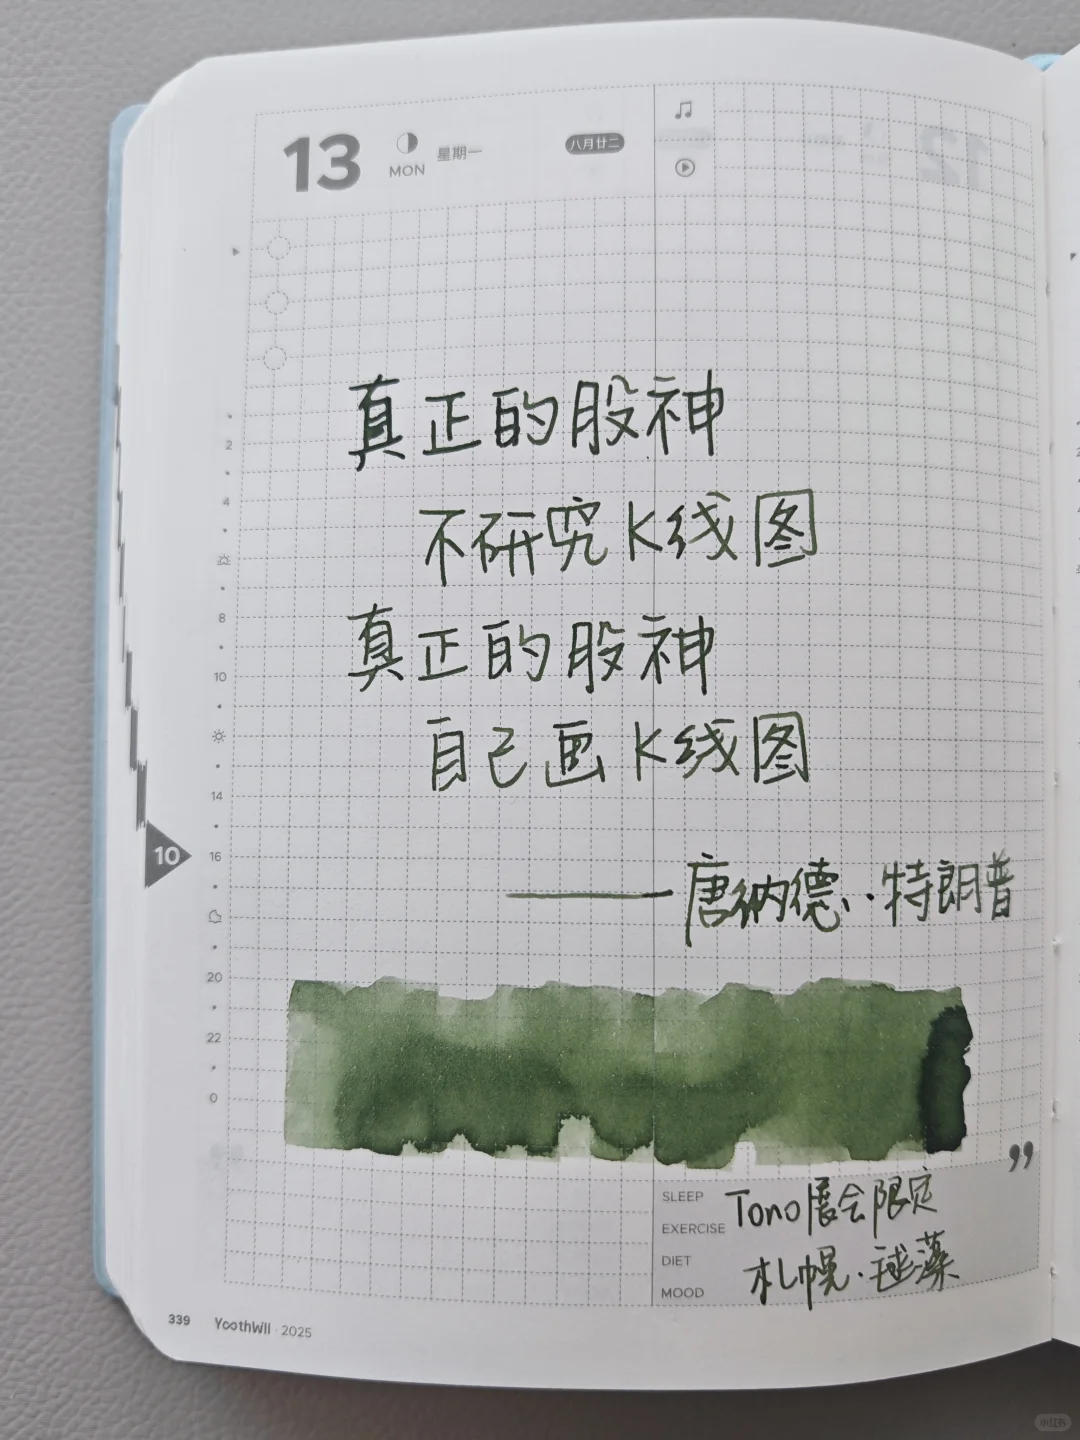 13
MON
星期一
八月廿二
真正的股神
不研究K线图
真正的股神
自己画K线图
——唐纳德··特朗普
2
4
8
10
14
10
16
20
22
0
SLEEP
EXERCISE
DIET
MOOD
Tono展会限定
札幌·毬藻
339
YoothWill · 2025
小红书